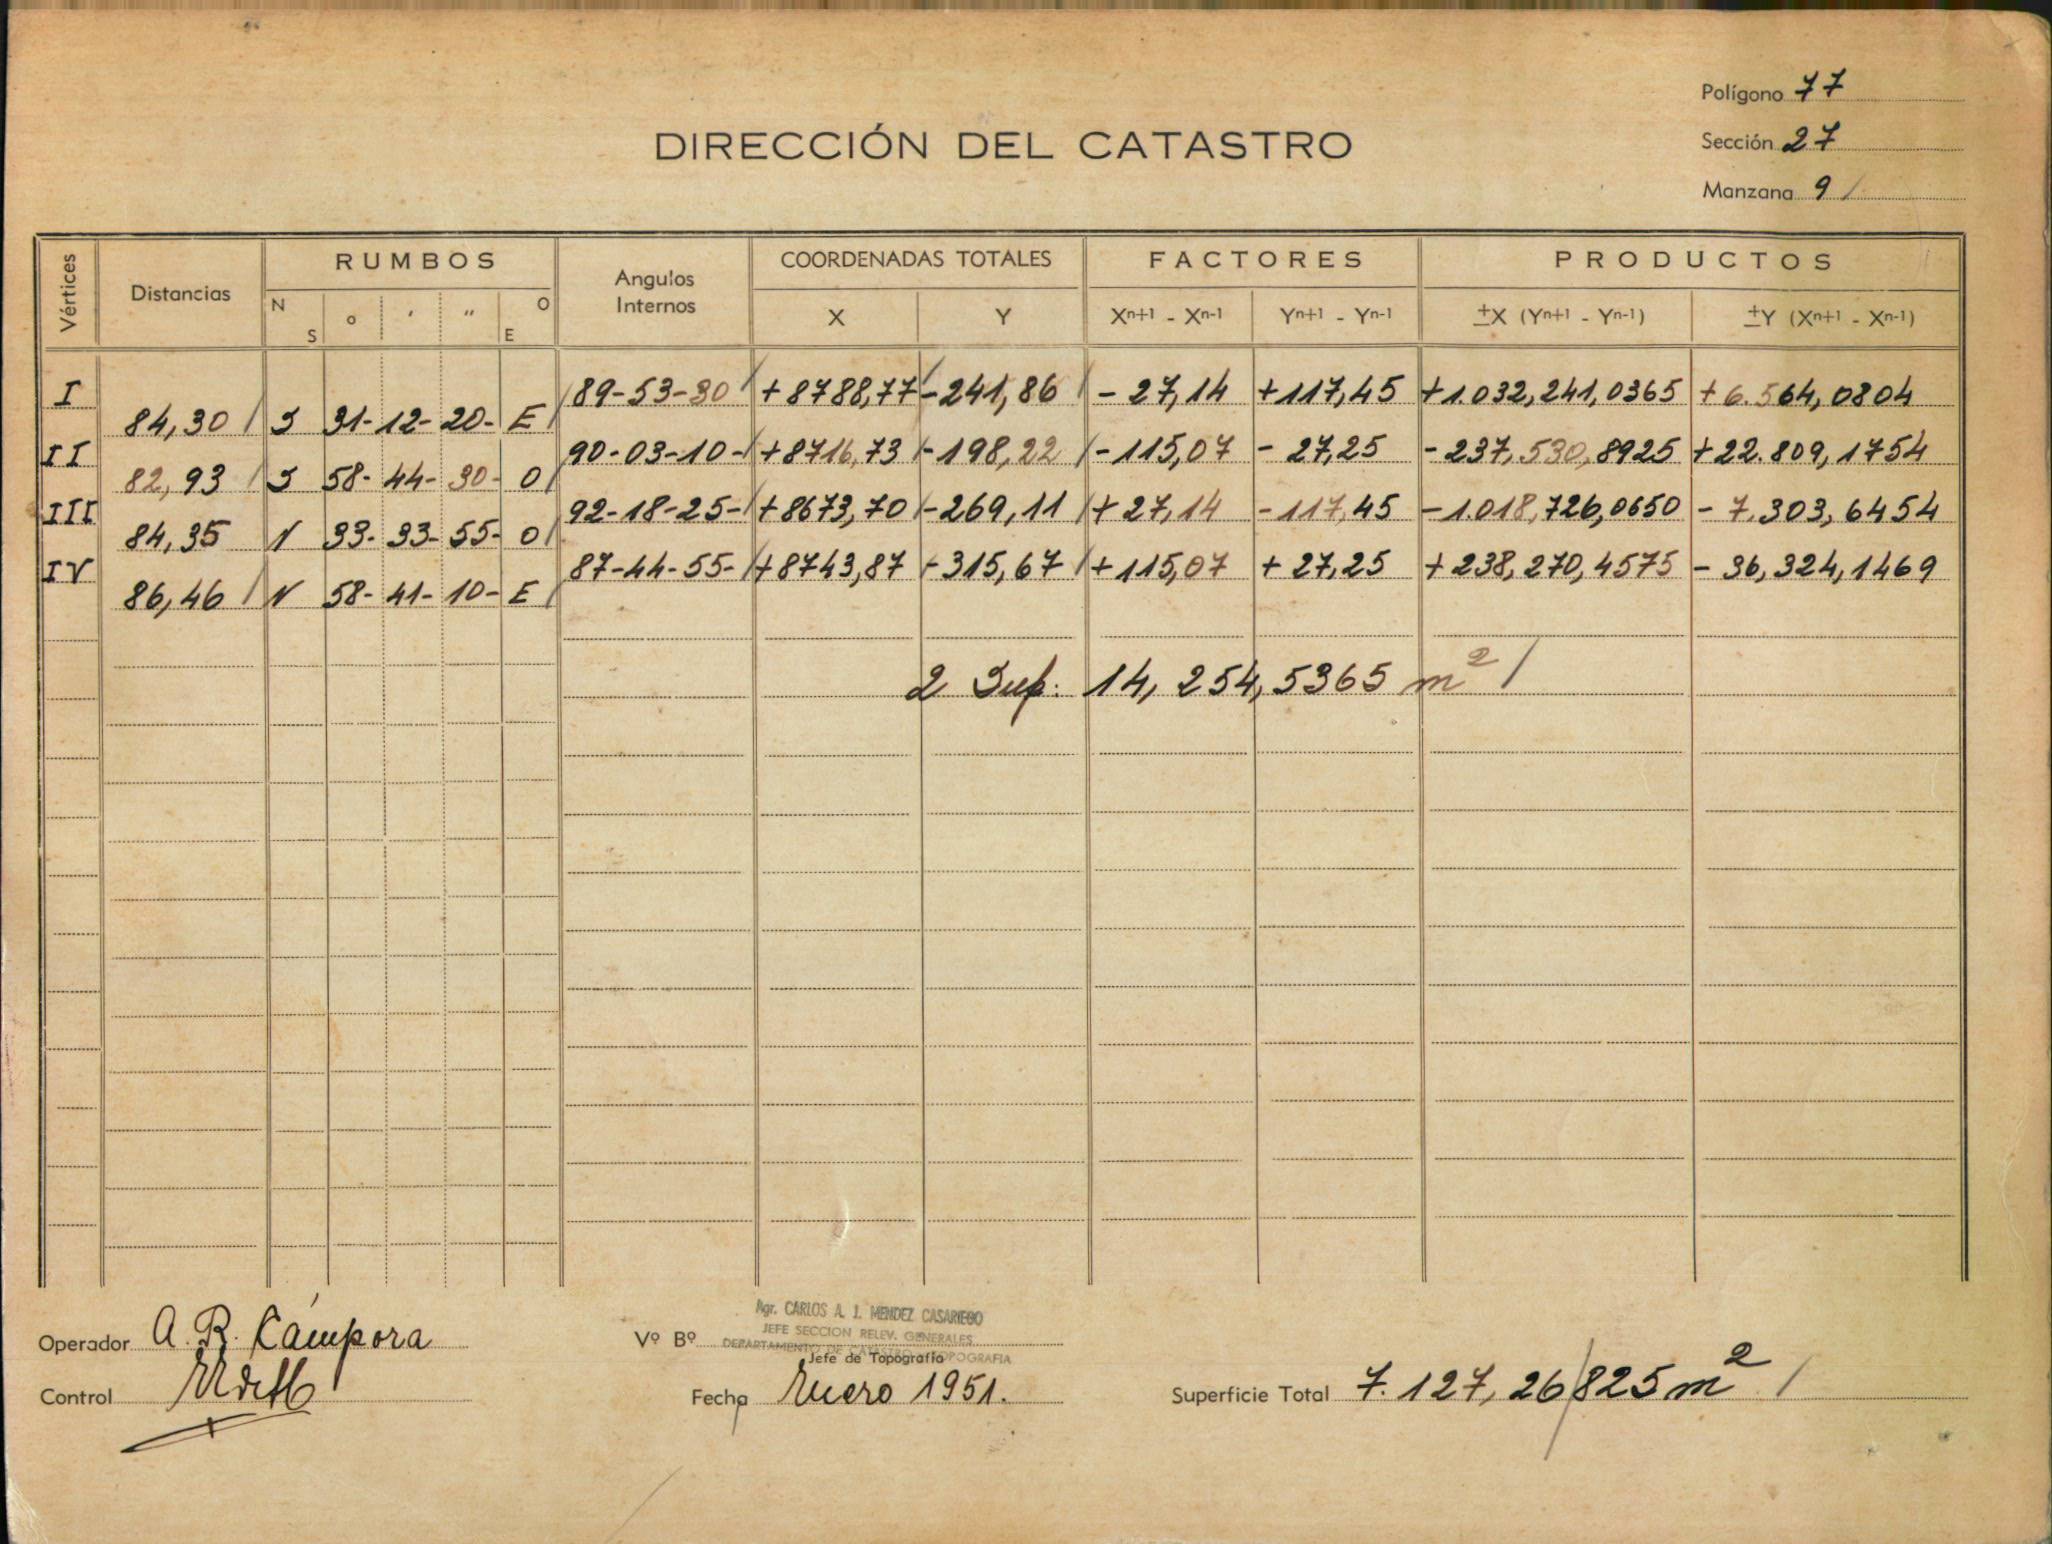 Polígono 77
DIRECCIÓN DEL CATASTRO
Sección 27
Manzana 9
Vértices Distancias RUMBOS Angulos Internos COORDENADAS TOTALES FACTORES PRODUCTOS
N S o ′ ″ O E X Y Xn+1 - Xn-1 Yn+1 - Yn-1 ±X (Yn+1 - Yn-1) ±Y (Xn+1 - Xn-1)
I 89-53-30 +8788,77 -241,86 - 27,14 +117,45 +1.032,241,0365 + 6.564,0804
84,30 S 31- 12- 20- E
II 90-03-10- +8716,73 -198,22 -115,07 - 27,25 -237,530,8925 +22.809,1754
82,93 S 58- 44- 30- O
III 92-18-25- +8673,70 -269,11 +27,14 -117,45 -1.018,726,0650 - 7.303,6454
84,35 N 33- 33- 55- O
IV 87-44-55- +8743,87 -315,67 +115,07 +27,25 +238,270,4575 - 36,324,1469
86,46 N 58- 41- 10- E
2 Sup: 14,254,5365 m²
Operador A. R. Cámpora
Vº Bº
Agr. CARLOS A. J. MENDEZ CASARIEGO
JEFE SECCION RELEV. GENERALES
DEPARTAMENTO DE CATASTRO Y TOPOGRAFIA
Jefe de Topografía
Control
Fecha Enero 1951.
Superficie Total 7.127,26/825 m²